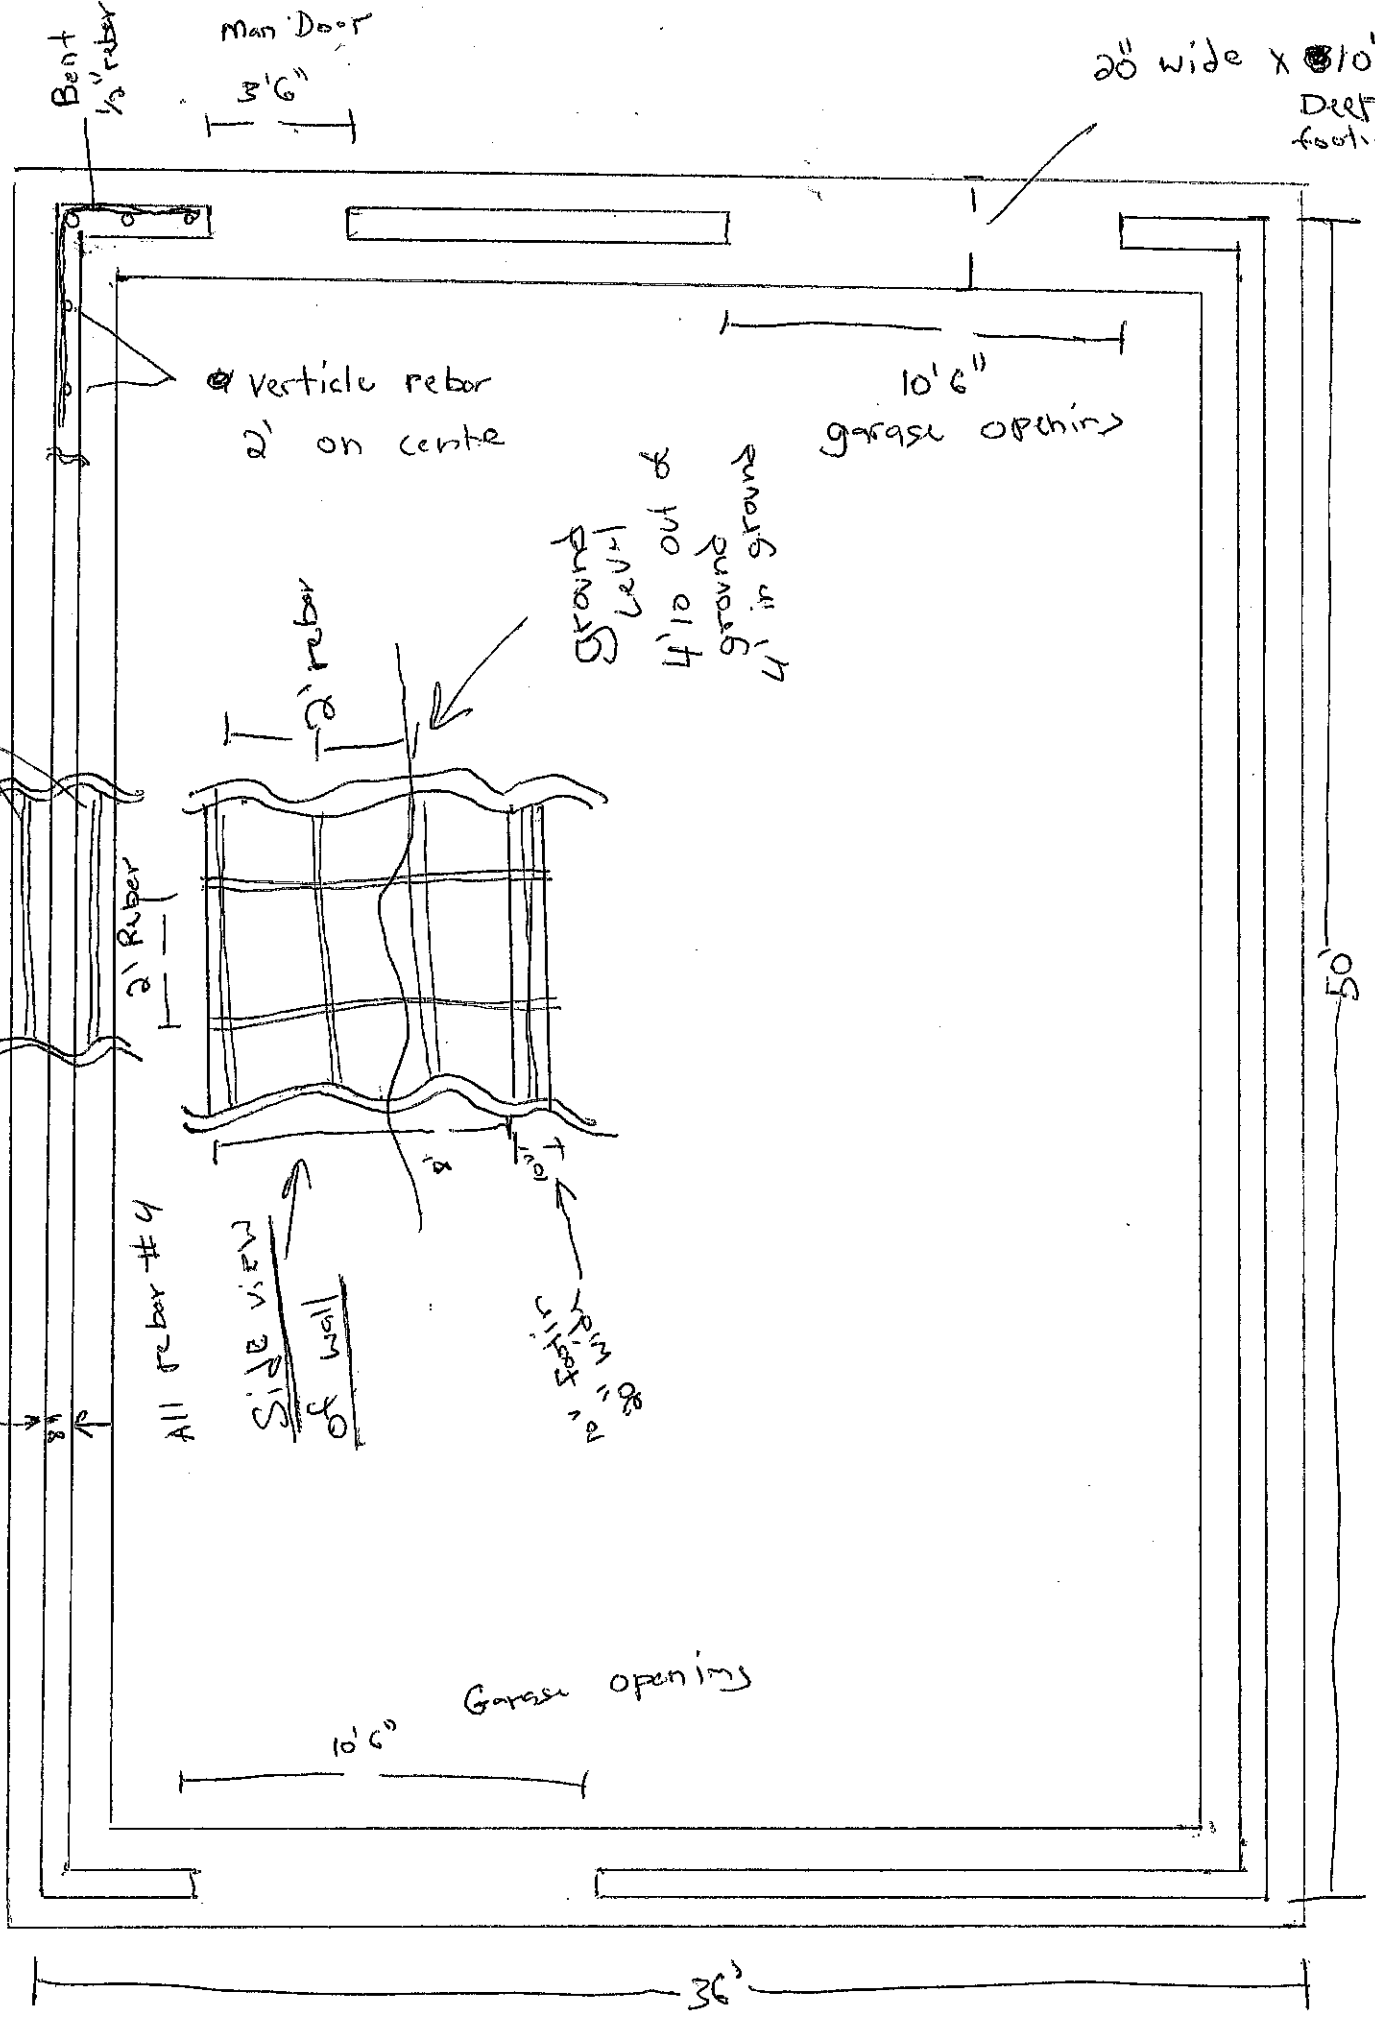 Bent
1/2" rebar
Man Door
3'6"
20" wide x 10"
Deep
footi
verticle rebar
2' on centre
10'6"
garage opening
ground
Level
4'10 out of
ground
4' in ground
2' rebar
2' Reber
50'
8'
10"
All rebar #4
Side view
of wall
footing
20" wide
8"
Garage opening
10'6"
36'